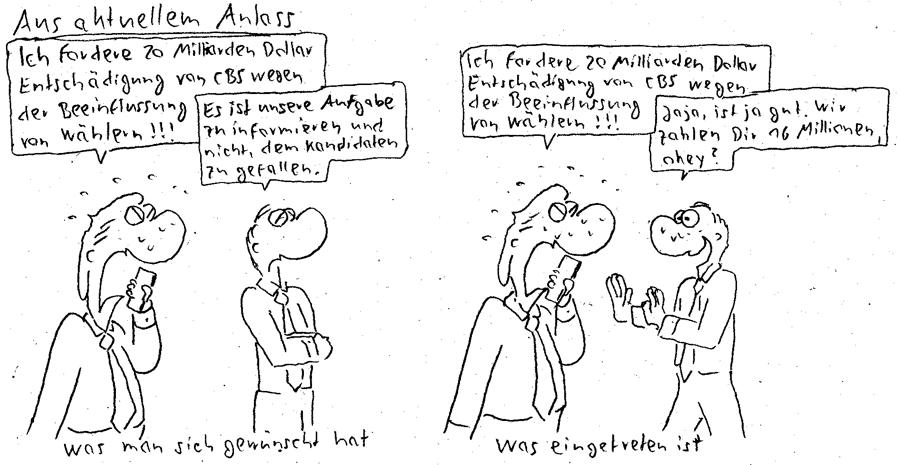 Aus aktuellem Anlass
Ich fordere 20 Milliarden Dollar
Entschädigung von CBS wegen
der Beeinflussung
von Wählern!!!
Es ist unsere Aufgabe
zu informieren und
nicht, dem Kandidaten
zu gefallen.
was man sich gewünscht hat
Ich fordere 20 Milliarden Dollar
Entschädigung von CBS wegen
der Beeinflussung
von Wählern!!!
Jaja, ist ja gut. Wir
zahlen Dir 16 Millionen,
okey?
was eingetreten ist